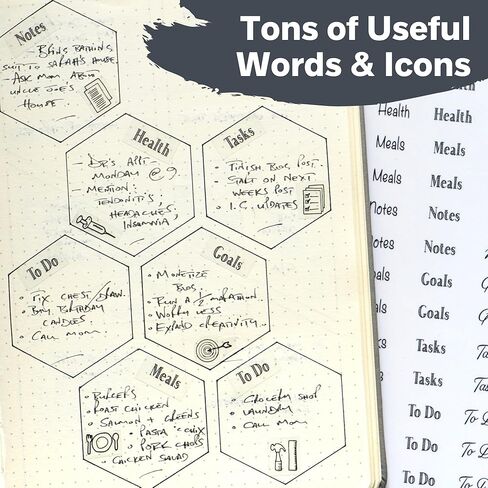 Tons of Useful
Words & Icons
Notes
- Bring bathing
suit to Sarah's house.
- Ask Mom about
uncle Joe's
House.
Health
- DR's Appt -
Monday @ 9.
- Mention:
Tendonitis,
Headaches,
Insomnia
Tasks
• Finish Blog Post.
• Start on next
weeks post
• I.G. updates
To Do
• Fix chest/draw.
• Buy Birthday
candles.
• Call mom.
Goals
• Monetize
Blog.
• Run a 1/2 marathon.
• Worry less
• Expand creativity.
Meals
• Burgers
• Roast chicken
• Salmon + greens
• Pasta
• Pork chops
• Chicken salad
To Do
• Grocery shop
• Laundry
• Call mom
Health Health
Meals Meals
Meals Meals
Notes Notes
Notes Notes
Goals
Goals
Tasks
Tasks
To Do
To Do
To Do